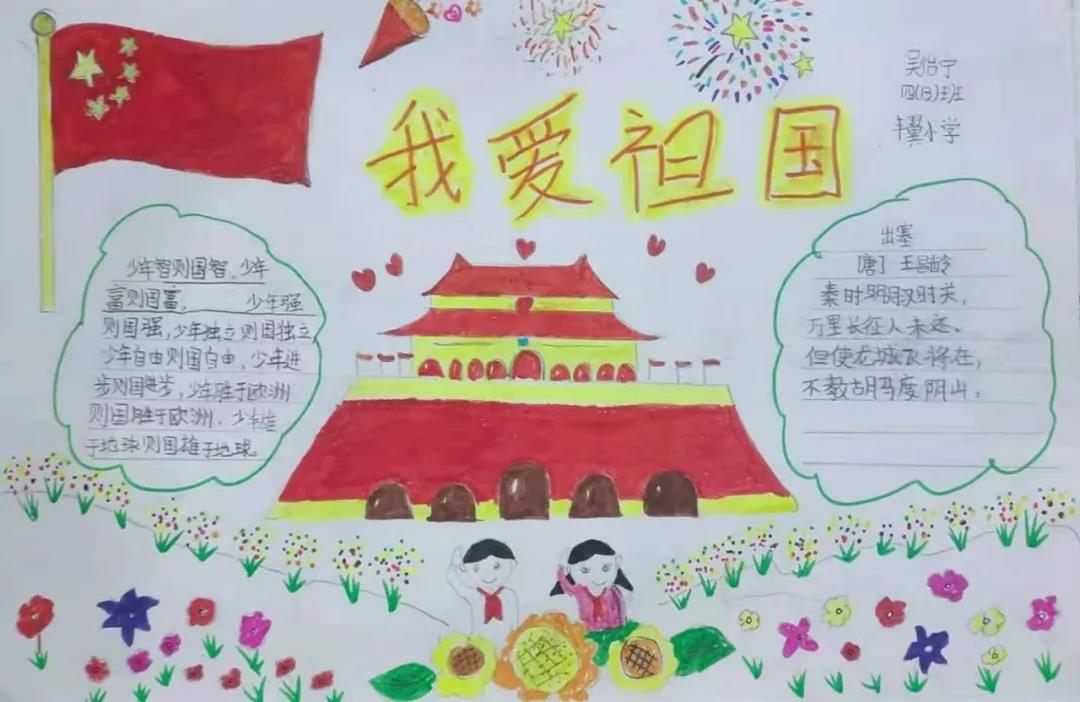 我爱祖国
吴怡宁
四(13)班
小学
少年智则国智，少年
富则国富，少年强
则国强，少年独立则国独立
少年自由则国自由，少年进
步则国进步，少年胜于欧洲
则国胜于欧洲，少年雄
于地球则国雄于地球
出塞
[唐] 王昌龄
秦时明月汉时关，
万里长征人未还。
但使龙城飞将在，
不教胡马度阴山。